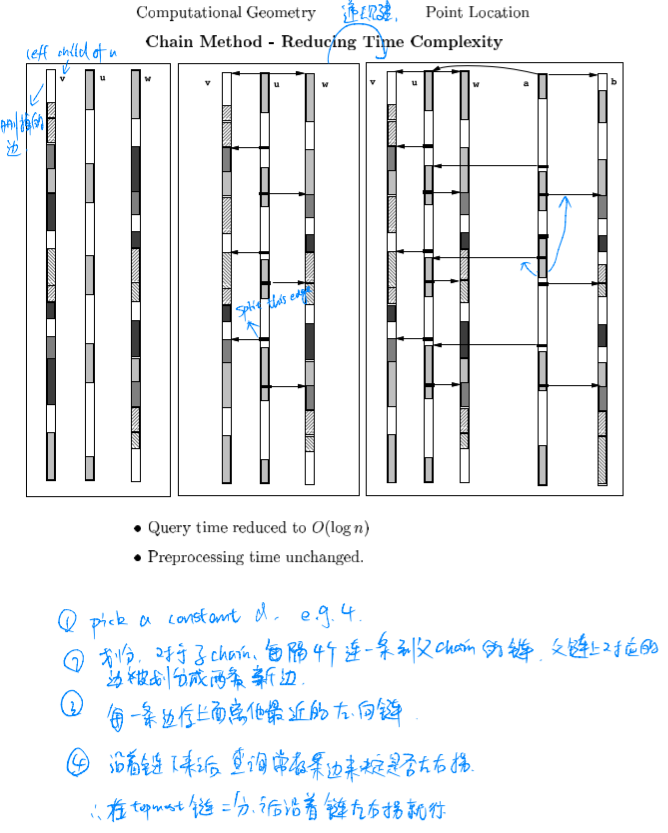 Computational Geometry Point Location
Chain Method - Reducing Time Complexity
left child of u
v u w
v u w
v u w a b
的
边
split this edge
• Query time reduced to O(log n)
• Preprocessing time unchanged.
① pick a constant d, e.g. 4.
② 划分, 对于子chain, 每隔4个连一条到父chain的链, 父链上对应的
边被划分成两条新边.
③ 每一条边存上面离他最近的左,右链
④ 沿着链下来后, 查询常数条边来决定是否左右拐.
∴ 在topmost链二分, 之后沿着链左右拐就行